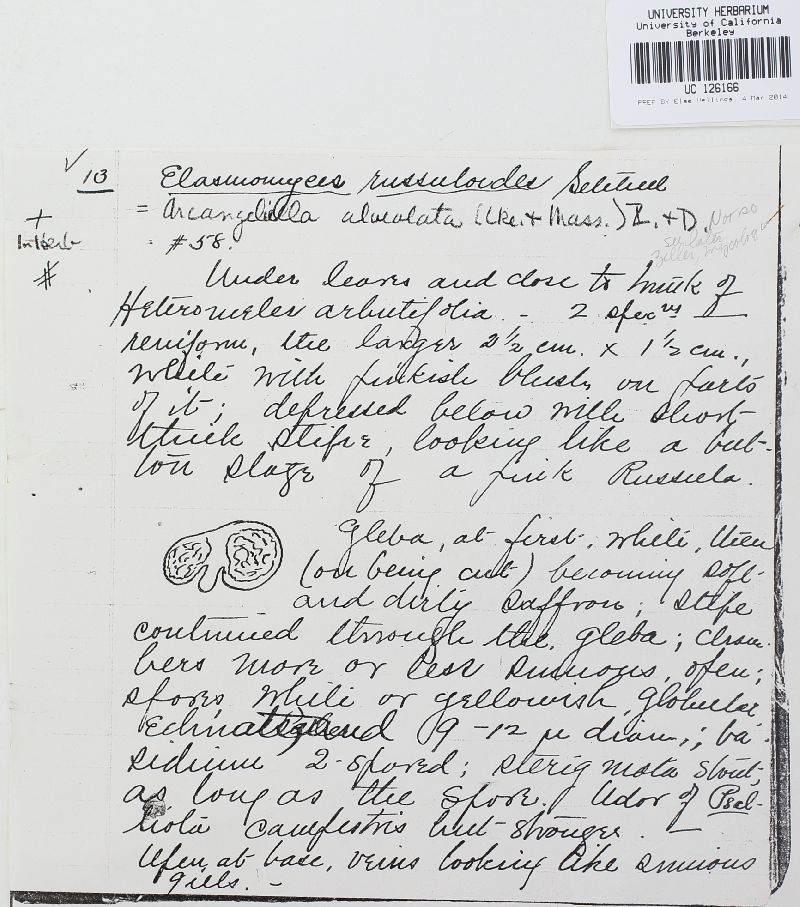 UNIVERSITY HERBARIUM
University of California
Berkeley
UC 126166
PREP BY Else Vellinga, 4 Mar 2014
✓ 113 Elasmomyces russuloides Setchell
= Arcangeliella alveolata (Cke. + Mass.) Z. + D. Not so
+
In Herb
#
#58.
see later
Zeller,
Under leaves and close to trunk of
Heteromeles arbutifolia. - 2 specms —
reniform, the larger 2½ cm. x 1½ cm.,
white with pinkish blush on parts
of it; depressed below with short
thick stipe, looking like a but-
ton stage of a pink Russula.
Gleba, at first, white, then
(on being cut) becoming soft
and dirty saffron; stipe
continued through the gleba; cham-
bers more or less sinuous, open;
spores white or yellowish, globular
Echinate 9-12 µ diam.; ba-
sidium 2-spored; sterigmata stout,
as long as the spore. Odor of Psal-
liota campestris but stronger. —
Open at base, veins looking like sinuous
gills. -